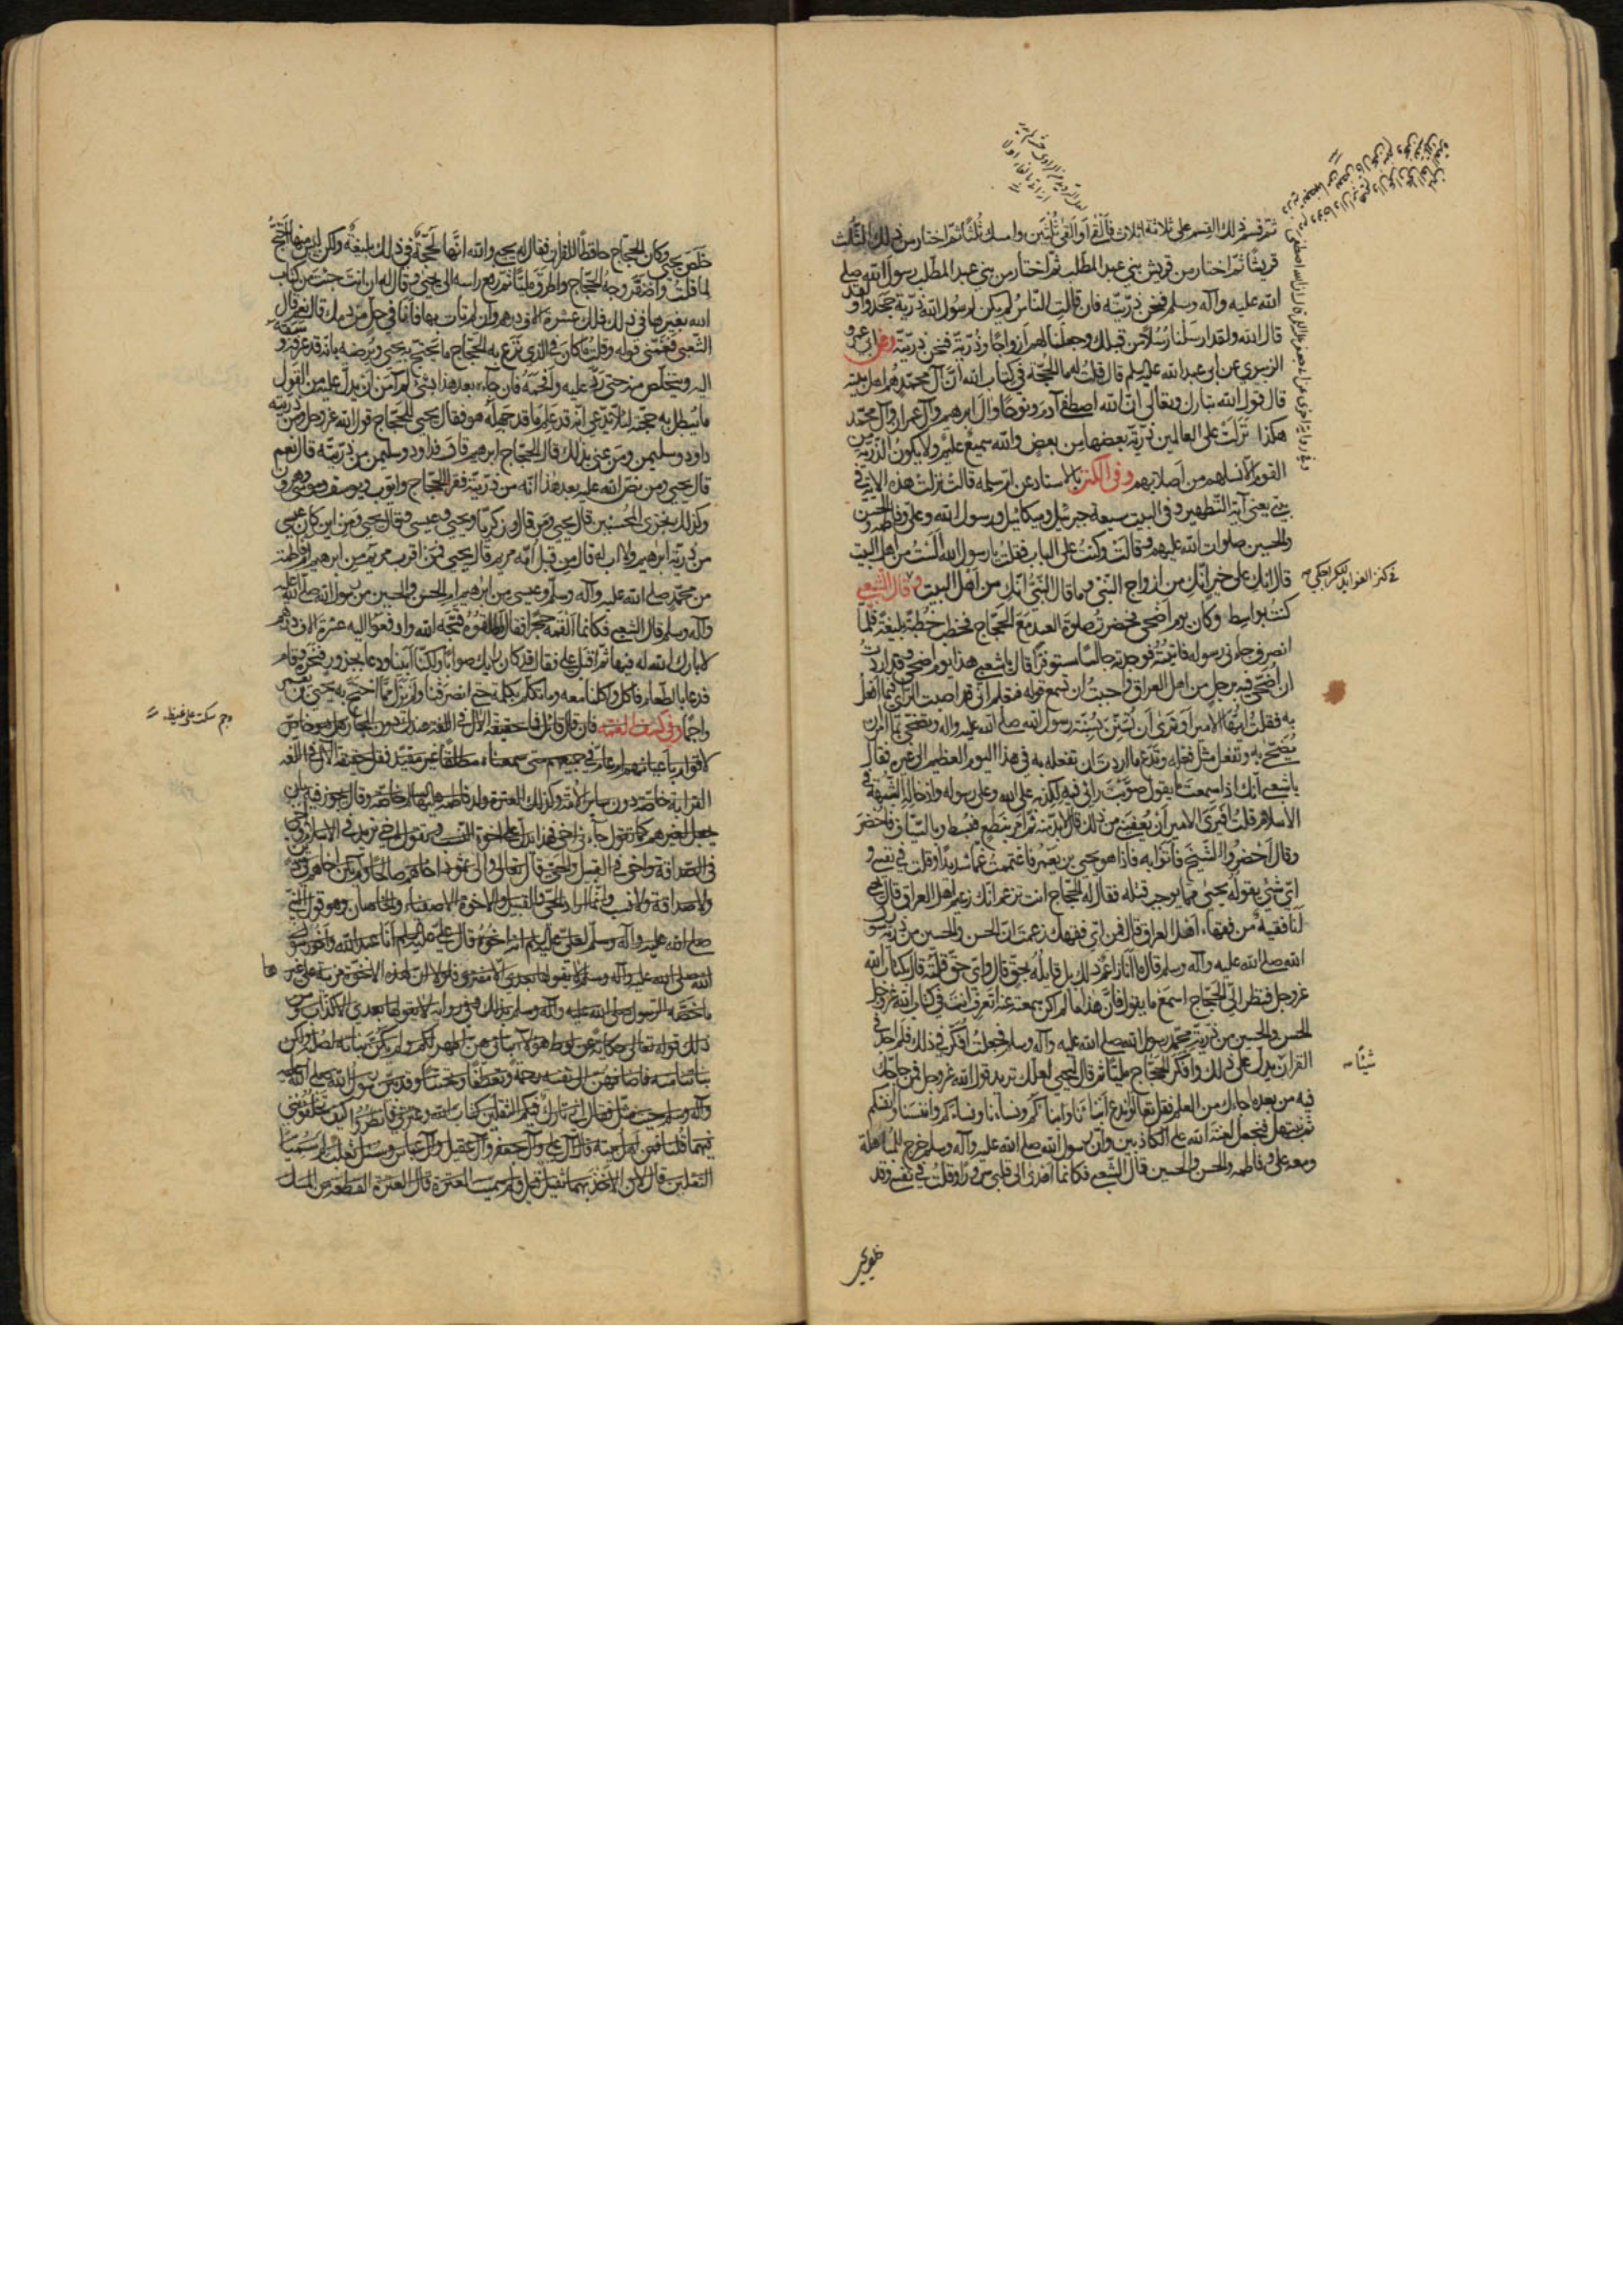 ثم قسم ذلك القسم على ثلاثة اثلاث فالقى ثلثين وامسك ثلثا ثم اختار من ذلك الثلث
قريشا ثم اختار من قريش بني عبد المطلب ثم اختار من بني عبد المطلب رسول الله صلى
الله عليه وآله وسلم فنحن ذريته فان قالت الناس لم يكن لرسول الله ذرية جحدوا ولقد
قال الله ولقد ارسلنا رسلا من قبلك وجعلنا لهم ازواجا وذرية فنحن ذريته وعن ابي عمرو
الزبيري عن ابي عبد الله عليه السلام قال قلت له ما الحجة في كتاب الله ان آل محمد هم اهل بيته
قال قول الله تبارك وتعالى ان الله اصطفى آدم ونوحا وال ابرهيم وآل عمران وآل محمد
هكذا نزلت على العالمين ذرية بعضها من بعض والله سميع عليم ولا يكون الذرية من
القوم الا نسلهم من اصلابهم وفي الكنز بالاسناد عن ام سلمه قالت نزلت هذه الاية في
بيتي يعني آية التطهير وفي البيت سبعة جبرئيل وميكائيل ورسول الله وعلي وفاطمة والحسن
والحسين صلوات الله عليهم وقالت وكنت على الباب فقلت يا رسول الله الست من اهل البيت
قال انك على خير انك من ازواج النبي وما قال النبي انك من اهل البيت وقال الشعبي
كنت بواسط وكان يوم اضحى فحضرت صلوة العيد مع الحجاج فخطب خطبة بليغة فلما
انصرف جاءني رسوله فاتيته فوجدته جالسا مستوفزا قال يا شعبي هذا يوم اضحى وقد اردت
ان اضحي فيه برجل من اهل العراق واحببت ان تسمع قوله فتعلم اني قد اصبت الراي فيما افعل
به فقلت ايها الامير او ترى ان تستن بسنة رسول الله صلى الله عليه واله وتضحي بما امر ان
يضحى به وتفعل مثل فعله وتدع ما اردت ان تفعله به في هذا اليوم العظيم الى غيره فقال
يا شعبي انك اذا سمعت ما يقول صوبت رائي فيه لكذبه على الله وعلى رسوله وادخاله الشبهة في
الاسلام قلت افيرى الامير ان يعفيني من ذلك قال لا بد منه ثم امر بنطع فبسط وبالسياف فاحضر
وقال احضروا الشيخ فاتوا به فاذا هو يحيى بن يعمر فاغتممت غما شديدا وقلت في نفسي و
اي شئ يقوله يحيى مما يوجب قتله فقال له الحجاج انت تزعم انك زعيم اهل العراق قال يحيى
انا فقيه من فقهاء اهل العراق قال فمن اي فقهك زعمت ان الحسن والحسين من ذرية رسول
الله صلى الله عليه وآله وسلم قال ما انا زاعم ذلك بل قايله بحق قال واي حق قلته قال بكتاب الله
عز وجل فنظر الي الحجاج اسمع ما يقول فان هذا مما لم اكن سمعته عنه اتعرف انت في كتاب الله عز وجل ان
الحسن والحسين من ذرية محمد رسول الله صلى الله عليه وآله وسلم فجعلت افكر في ذلك فلم اجد في
القران يدل على ذلك وافكر الحجاج مليا ثم قال ليحيى لعلك تريد قول الله عز وجل فمن حاجك
فيه من بعد ما جاءك من العلم فقل تعالوا ندع ابناءنا وابناءكم ونساءنا ونساءكم وانفسنا وانفسكم
ثم نبتهل فنجعل لعنة الله على الكاذبين وان رسول الله صلى الله عليه وآله وسلم خرج للمباهلة
ومعه علي وفاطمه والحسن والحسين قال الشعبي فكانما اهدى الى قلبي سرورا وقلت في نفسي وقد
في كنز الفوائد للكراجكي
شيئا
خلص يحيى
خلص يحيى وكان الحجاج حافظا للقران فقال له يحيى والله انها لحجة في ذلك بليغة ولكن ليس منها احتج
لما قلت واصفر وجه الحجاج واطرق مليا ثم رفع راسه الى يحيى وقال له ان انت جئت من كتاب
الله بغيرها في ذلك فلك عشرة الاف درهم وان لم تات بها فانا في حل من دمك قال نعم قال
الشعبي فغمني قوله وقلت ما كان في الذي نزع به الحجاج ما يحتج به يحيى ويرضيه بانه قد عرفه وسبقه
اليه ويتخلص منه حتى رد عليه وافحمه فان جاء بعد هذا بشئ لم آمن ان يدخل عليه من القول
ما يبطل به حجته لئلا يدعي انه قد علم ما قد جهله هو فقال يحيى للحجاج قول الله عز وجل ومن ذريته
داود وسليمن ومن عنى بذلك قال الحجاج ابرهيم قال فداود وسليمن من ذريته قال نعم
قال يحيى ومن نص الله عليه بعد هذا انه من ذريته فقرا الحجاج وايوب ويوسف وموسى وهرون
وكذلك نجزي المحسنين قال يحيى ومن قال وزكريا ويحيى وعيسى وقال يحيى ومن اين كان عيسى
من ذرية ابرهيم ولا اب له قال من قبل امه مريم قال يحيى فمن اقرب مريم من ابرهيم ام فاطمة
من محمد صلى الله عليه وآله وسلم وعيسى من ابرهيم ام الحسن والحسين من رسول الله صلى الله عليه
وآله وسلم قال الشعبي فكانما القمه حجرا فقال اطلقوه قبحه الله وادفعوا اليه عشرة الاف درهم
لا بارك الله له فيها ثم اقبل علي فقال قد كان رايك صوابا ولكنا ابيناه ودعا بجزور فنحره وقام
فدعا بالطعام فاكل واكلنا معه وما تكلم بكلمة حتى انصرفنا ولم يزل مما احتج به يحيى بن يعمر
واجما وفي كشف الغمة فان قال قائل فما حقيقة الآل في اللغة عندك دون المجاز هل هو خاص
لاقوام باعيانهم ام عام في جميعهم متى سمعناه مطلقا غير مقيد فقل حقيقة الآل في اللغه
القرابة خاصة دون ساير الامة وكذلك العترة ولد فاطمة عليها السلام خاصة وقد يجوز فيه بان
يجعل لغيرهم كما تقول جاءني اخي فهذا يدل على اخوة النسب وتقول اخي تريد في الاسلام واخي
في الصداقة واخي في القبيل والحي قال تعالى والى ثمود اخاهم صالحا ولم يكن اخاهم في دين
ولا صداقة ولا نسب وانما اراد الحي والقبيل والاخوة الاصفياء والخلصان وهو قول النبي
صلى الله عليه وآله وسلم لعلي عليه السلام انه اخوه قال علي عليه السلام انا عبد الله واخو رسول
الله صلى الله عليه وآله وسلم لا يقولها بعدي الا مفتر فلولا ان لهذه الاخوة مزية على غيرها
ما خصه الرسول صلى الله عليه وآله وسلم بذلك وفي رواية لا يقولها بعدي الا كذاب ومن
ذلك قوله تعالى حكاية عن لوط هؤلاء بناتي هن اطهر لكم ولم يكن بناته لصلبه ولكن
بنات امته فاضافهن الى نفسه رحمة وتعطفا وتحننا وقد بين رسول الله صلى الله عليه
وآله وسلم حيث سئل فقال اني تارك فيكم الثقلين كتاب الله وعترتي فانظروا كيف تخلفوني
فيهما قلنا فمن اهل بيته قال آل علي وآل جعفر وآل عقيل وآل عباس وسئل ثعلب لم سميا
الثقلين قال لان الاخذ بهما ثقيل قيل ولم سميت العترة قال العترة القطعة من المسك
وجم سكت على غيظ